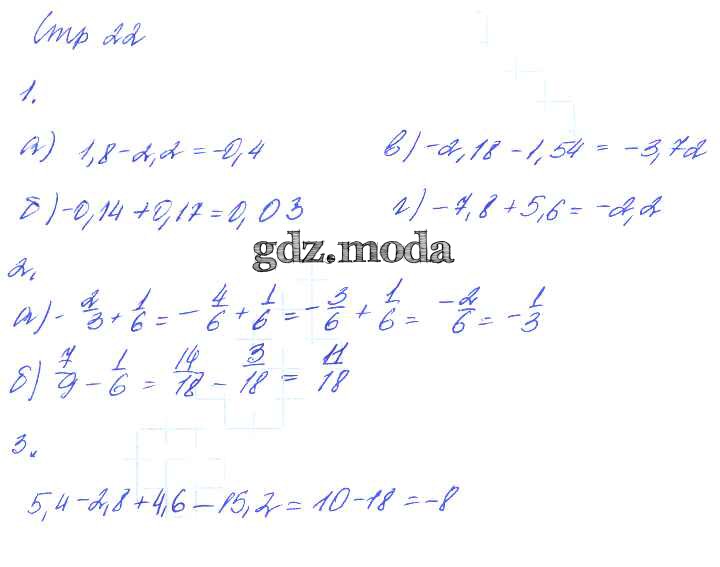 Стр 22
1.
а) 1,8-2,2=-0,4
в) -2,18-1,54=-3,72
б) -0,14+0,17=0,03
г) -7,8+5,6=-2,2
gdz.moda
2.
а) -2/3+1/6=-4/6+1/6=-3/6+1/6=-2/6=-1/3
б) 7/9-1/6=14/18-3/18=11/18
3.
5,4-2,8+4,6-15,2=10-18=-8